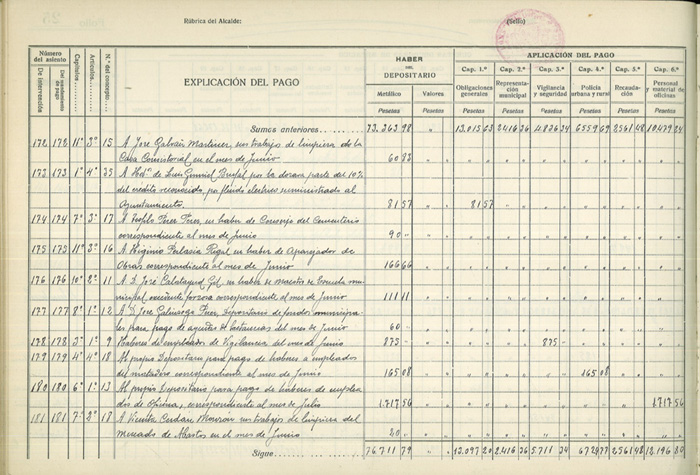 Rúbrica del Alcalde:
(Sello)
Número del asiento
De intervención
Del mandamiento de pago
Capítulos
Artículos
N.º del concepto
EXPLICACIÓN DEL PAGO
HABER DEL DEPOSITARIO
Metálico
Valores
Pesetas
Pesetas
APLICACIÓN DEL PAGO
Cap. 1.º
Cap. 2.º
Cap. 3.º
Cap. 4.º
Cap. 5.º
Cap. 6.º
Obligaciones generales
Representación municipal
Vigilancia y seguridad
Policía urbana y rural
Recaudación
Personal y material de oficinas
Pesetas Pesetas Pesetas Pesetas Pesetas Pesetas
Sumas anteriores 73.363 98 13.015 63 2.416 36 4.836 34 6.559 69 2.561 48 10.479 24
172 172 11º 3º 15 A José Galvañ Martinez, un trabajo de limpieza de la
Casa Consistorial en el mes de Junio 60 83
173 173 1º 4º 35 A de Luis la dozava parte del 10%
del crédito reconocido, por fluido electrico suministrado al
Ayuntamiento 81 57 81 57
174 174 7º 3º 17 A Perez Perez, su haber de Conserje del Cementerio
correspondiente al mes de Junio 90
175 175 11º 3º 16 A Higinio su haber de Aparejador de
Obras correspondiente al mes de Junio 166 66
176 176 10º 2º 11 A D. José Calatayud Gil, su haber de Maestro de Escuela
excedente forzoso correspondiente al mes de Junio 111 11
177 177 8º 1º 12 A D. José Perez, Depositario de fondos municipa-
les para pago de del mes de Junio 60
178 178 3º 1º 9 Haberes de empleados de Vigilancia del mes de Junio 875 875
179 179 4º 4º 18 Al propio Depositario para pago de haberes a empleados
del matadero correspondiente al mes de Junio 165 08 165 08
180 180 6º 1º 13 Al propio Depositario para pago de haberes de emplea-
dos de oficina, correspondiente al mes de Julio 1.717 56 1.717 56
181 181 7º 2º 18 A Vicente Cerdan un trabajo de limpieza del
Mercado de Abastos en el mes de Junio 20
Sigue 76.711 79 13.097 20 2.416 36 5.711 34 6.724 77 2.561 48 12.196 80